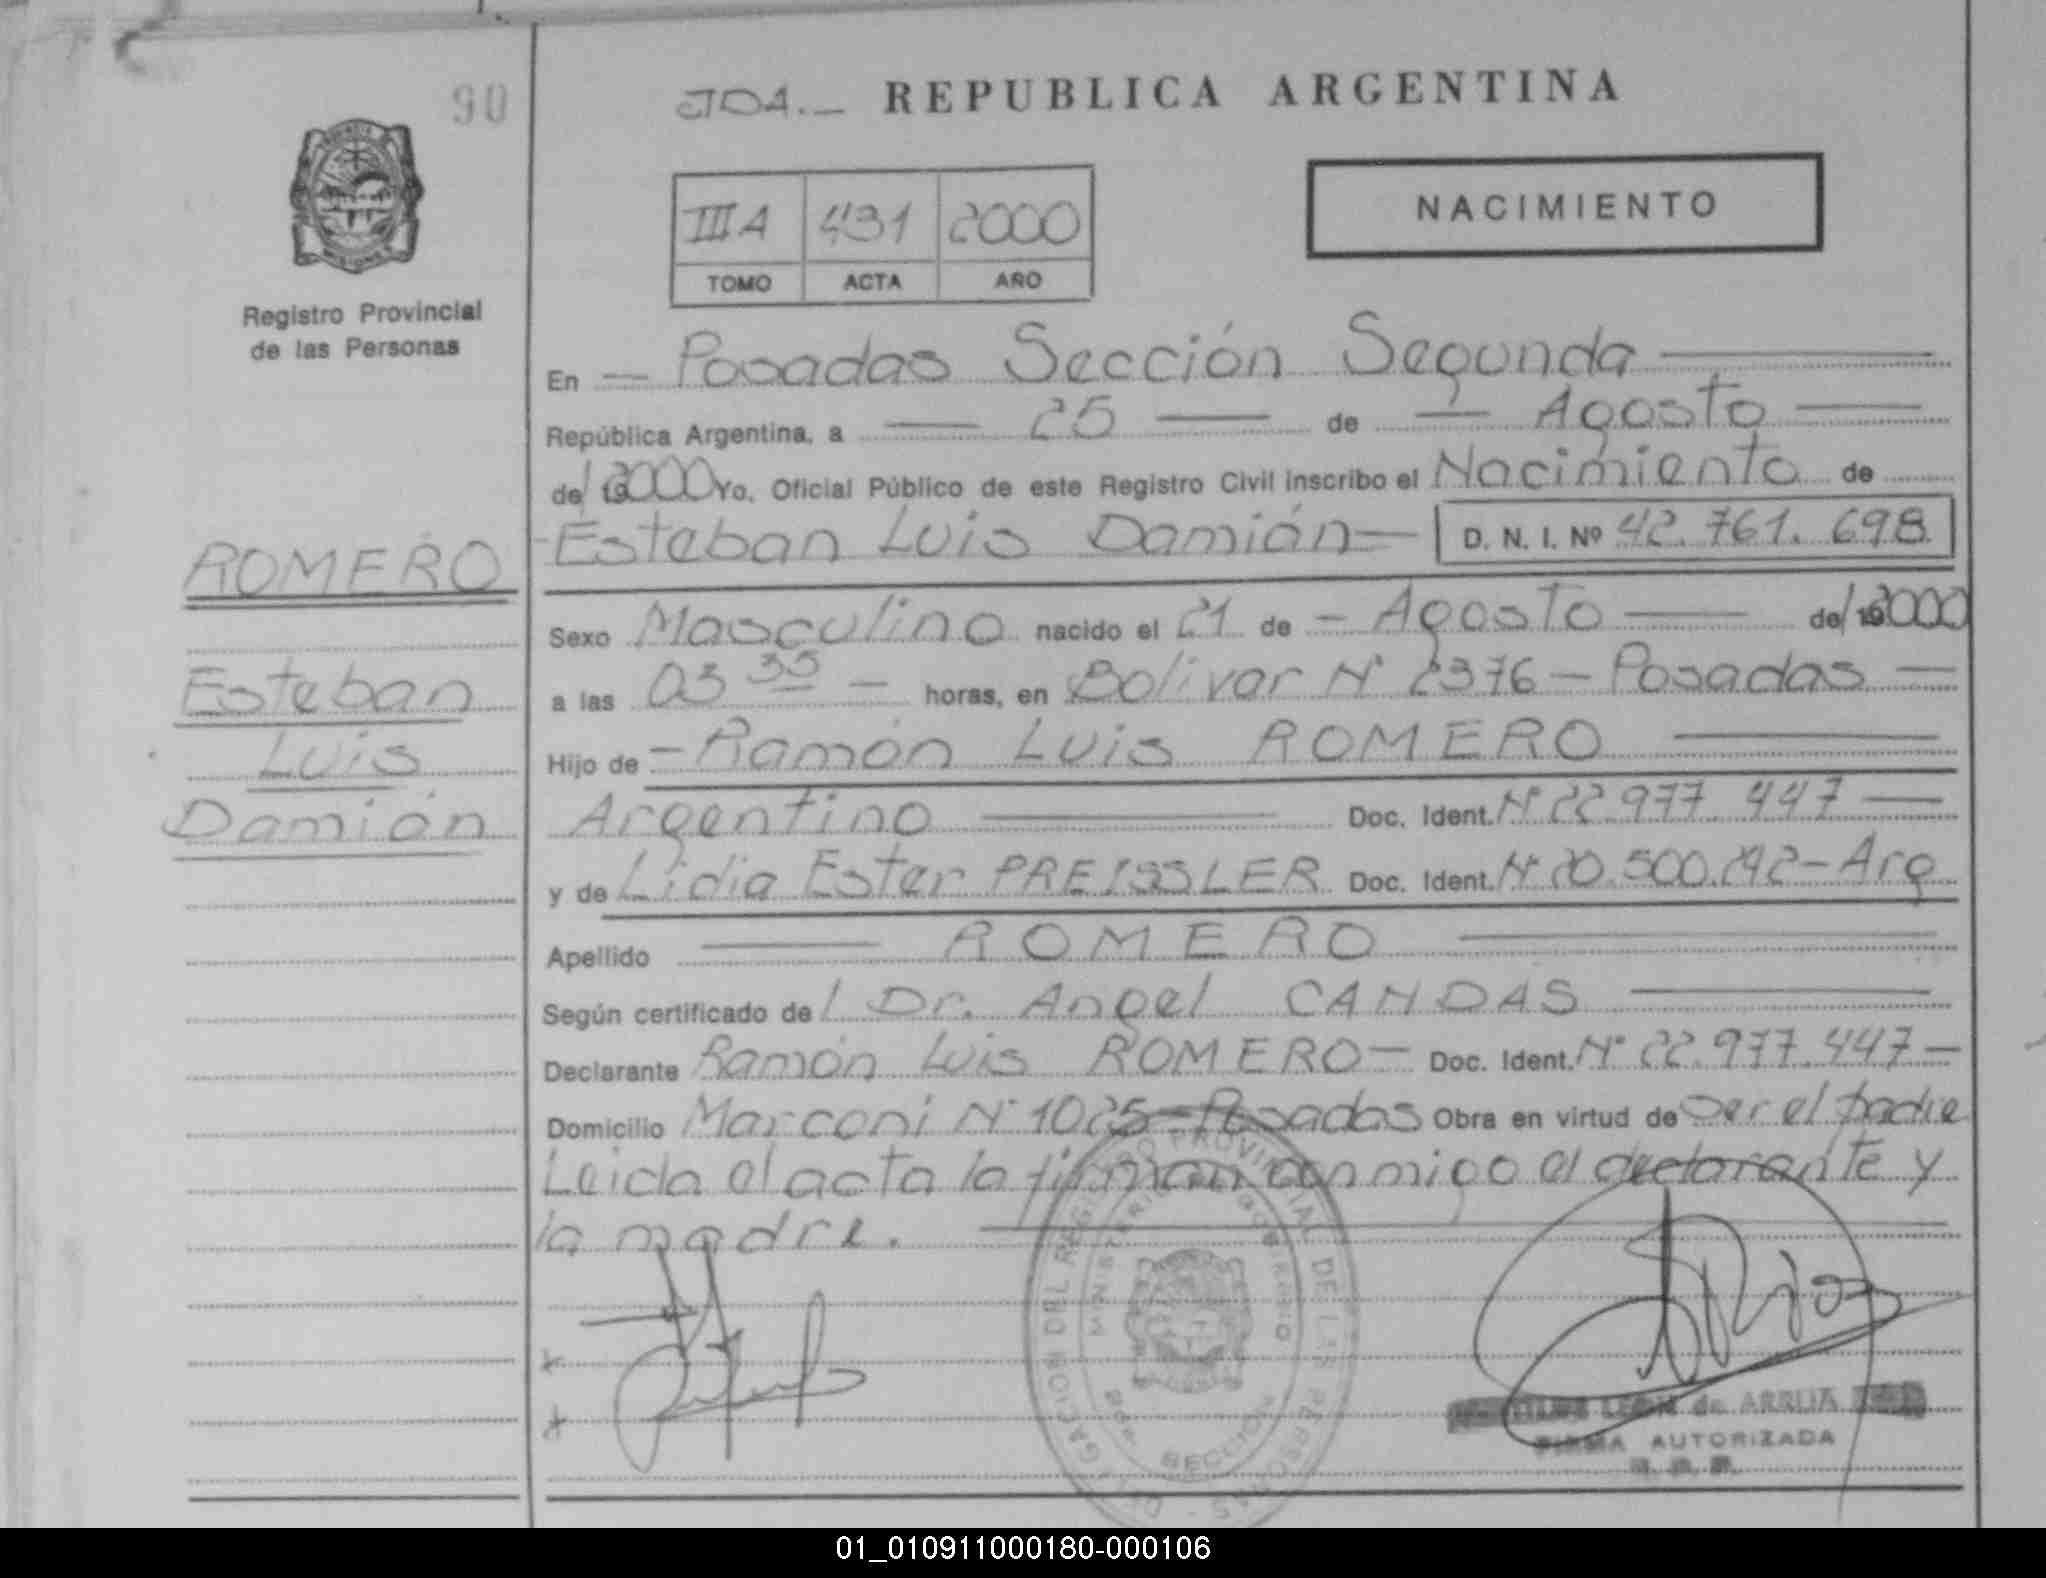 90
JDA.— REPUBLICA ARGENTINA
III A 431 2000
TOMO ACTA AÑO
NACIMIENTO
PROVINCIA
MISIONES
Registro Provincial
de las Personas
En — Posadas Sección Segunda —
República Argentina, a — 25 — de — Agosto —
de/ 19 2000 Yo, Oficial Público de este Registro Civil inscribo el Nacimiento de
Esteban Luis Damián — D. N. I. Nº 42.761.698
ROMERO
Esteban
Luis
Damián
Sexo Masculino nacido el 21 de — Agosto — de/ 19 2000
a las 03 35 — horas, en Bolivar Nº 2376 — Posadas —
Hijo de — Ramón Luis ROMERO —
Argentino — Doc. Ident. Nº 22.977.447 —
y de Lidia Ester PREISSLER Doc. Ident. Nº 20.500.242 — Arg
Apellido — ROMERO —
Según certificado de/ Dr. Angel CANDAS —
Declarante Ramón Luis ROMERO — Doc. Ident. Nº 22.977.447 —
Domicilio Marconi Nº 1025 — Posadas Obra en virtud de ser el padre
Leida el acta la firman conmigo el declarante y
la madre. —
DELEGACION DEL REGISTRO PROVINCIAL DE LAS PERSONAS
MINISTERIO DE GOBIERNO
2da. SECCION
LEON de ARRUA
FIRMA AUTORIZADA
01_010911000180-000106